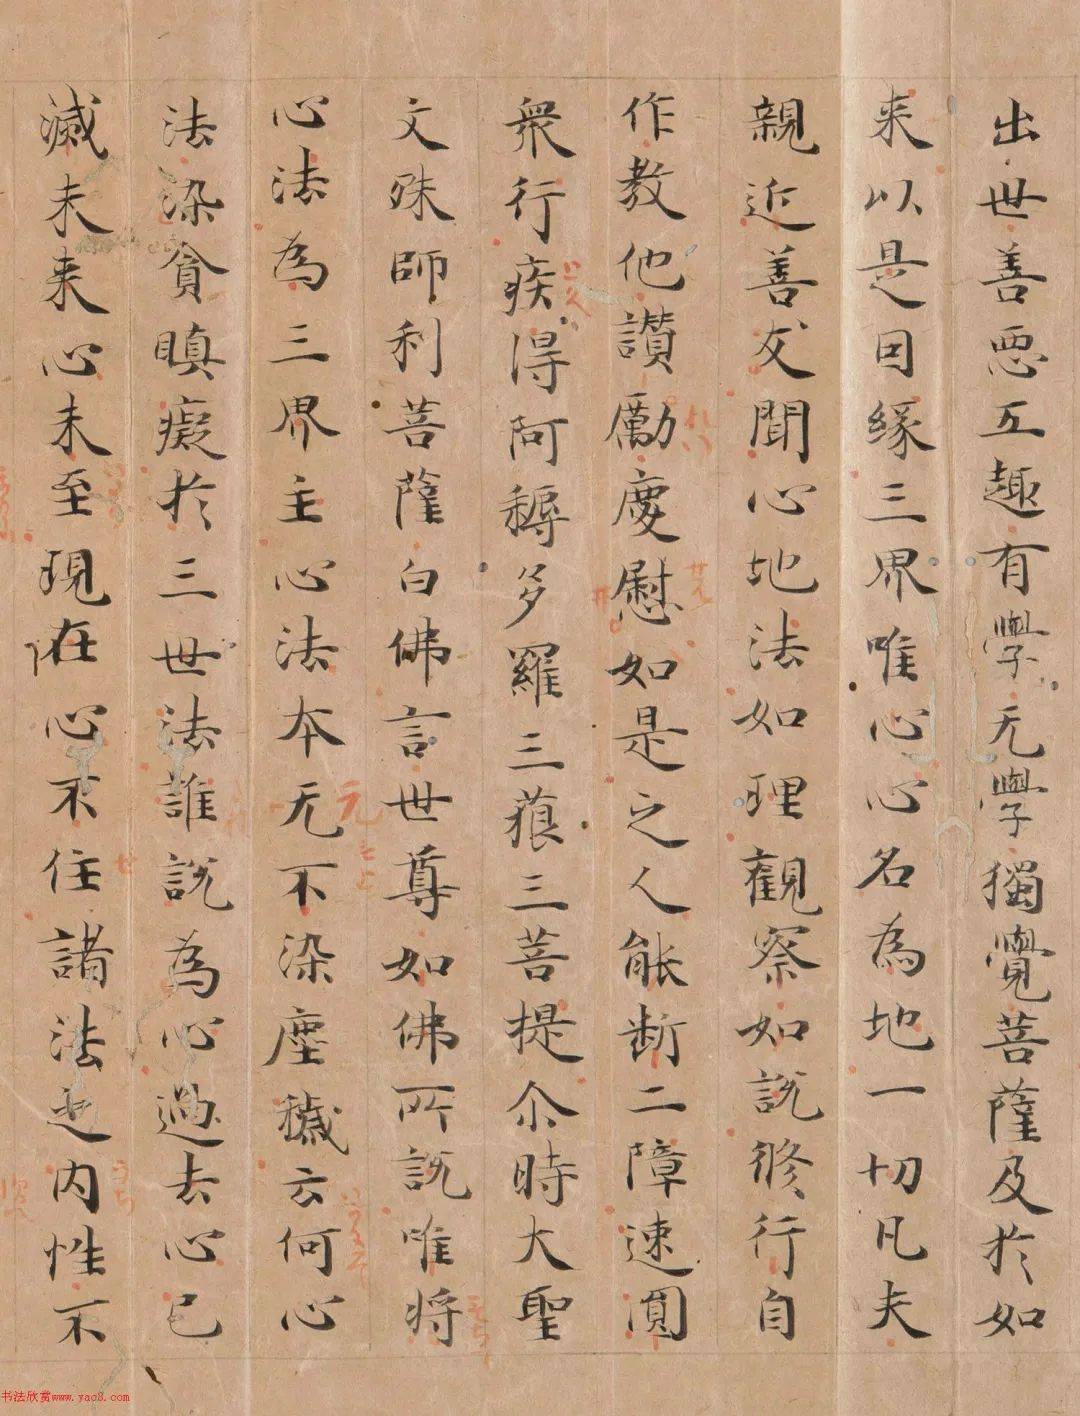 出世善惡五趣有學无學獨覺菩薩及於如
来以是因緣三界唯心心名為地一切凡夫
親近善友聞心地法如理觀察如說修行自
作教他讃勵慶慰如是之人能断二障速圓
衆行疾得阿耨多羅三藐三菩提尒時大聖
文殊師利菩薩白佛言世尊如佛所說唯将
心法為三界主心法本无不染塵穢云何心
法染貪瞋癡於三世法誰說為心過去心已
滅未来心未至現在心不住諸法之内性不
无
书法欣赏www.yac8.com